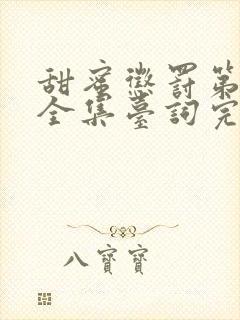 甜蜜懲罰第
全集臺詞完
八寶寶